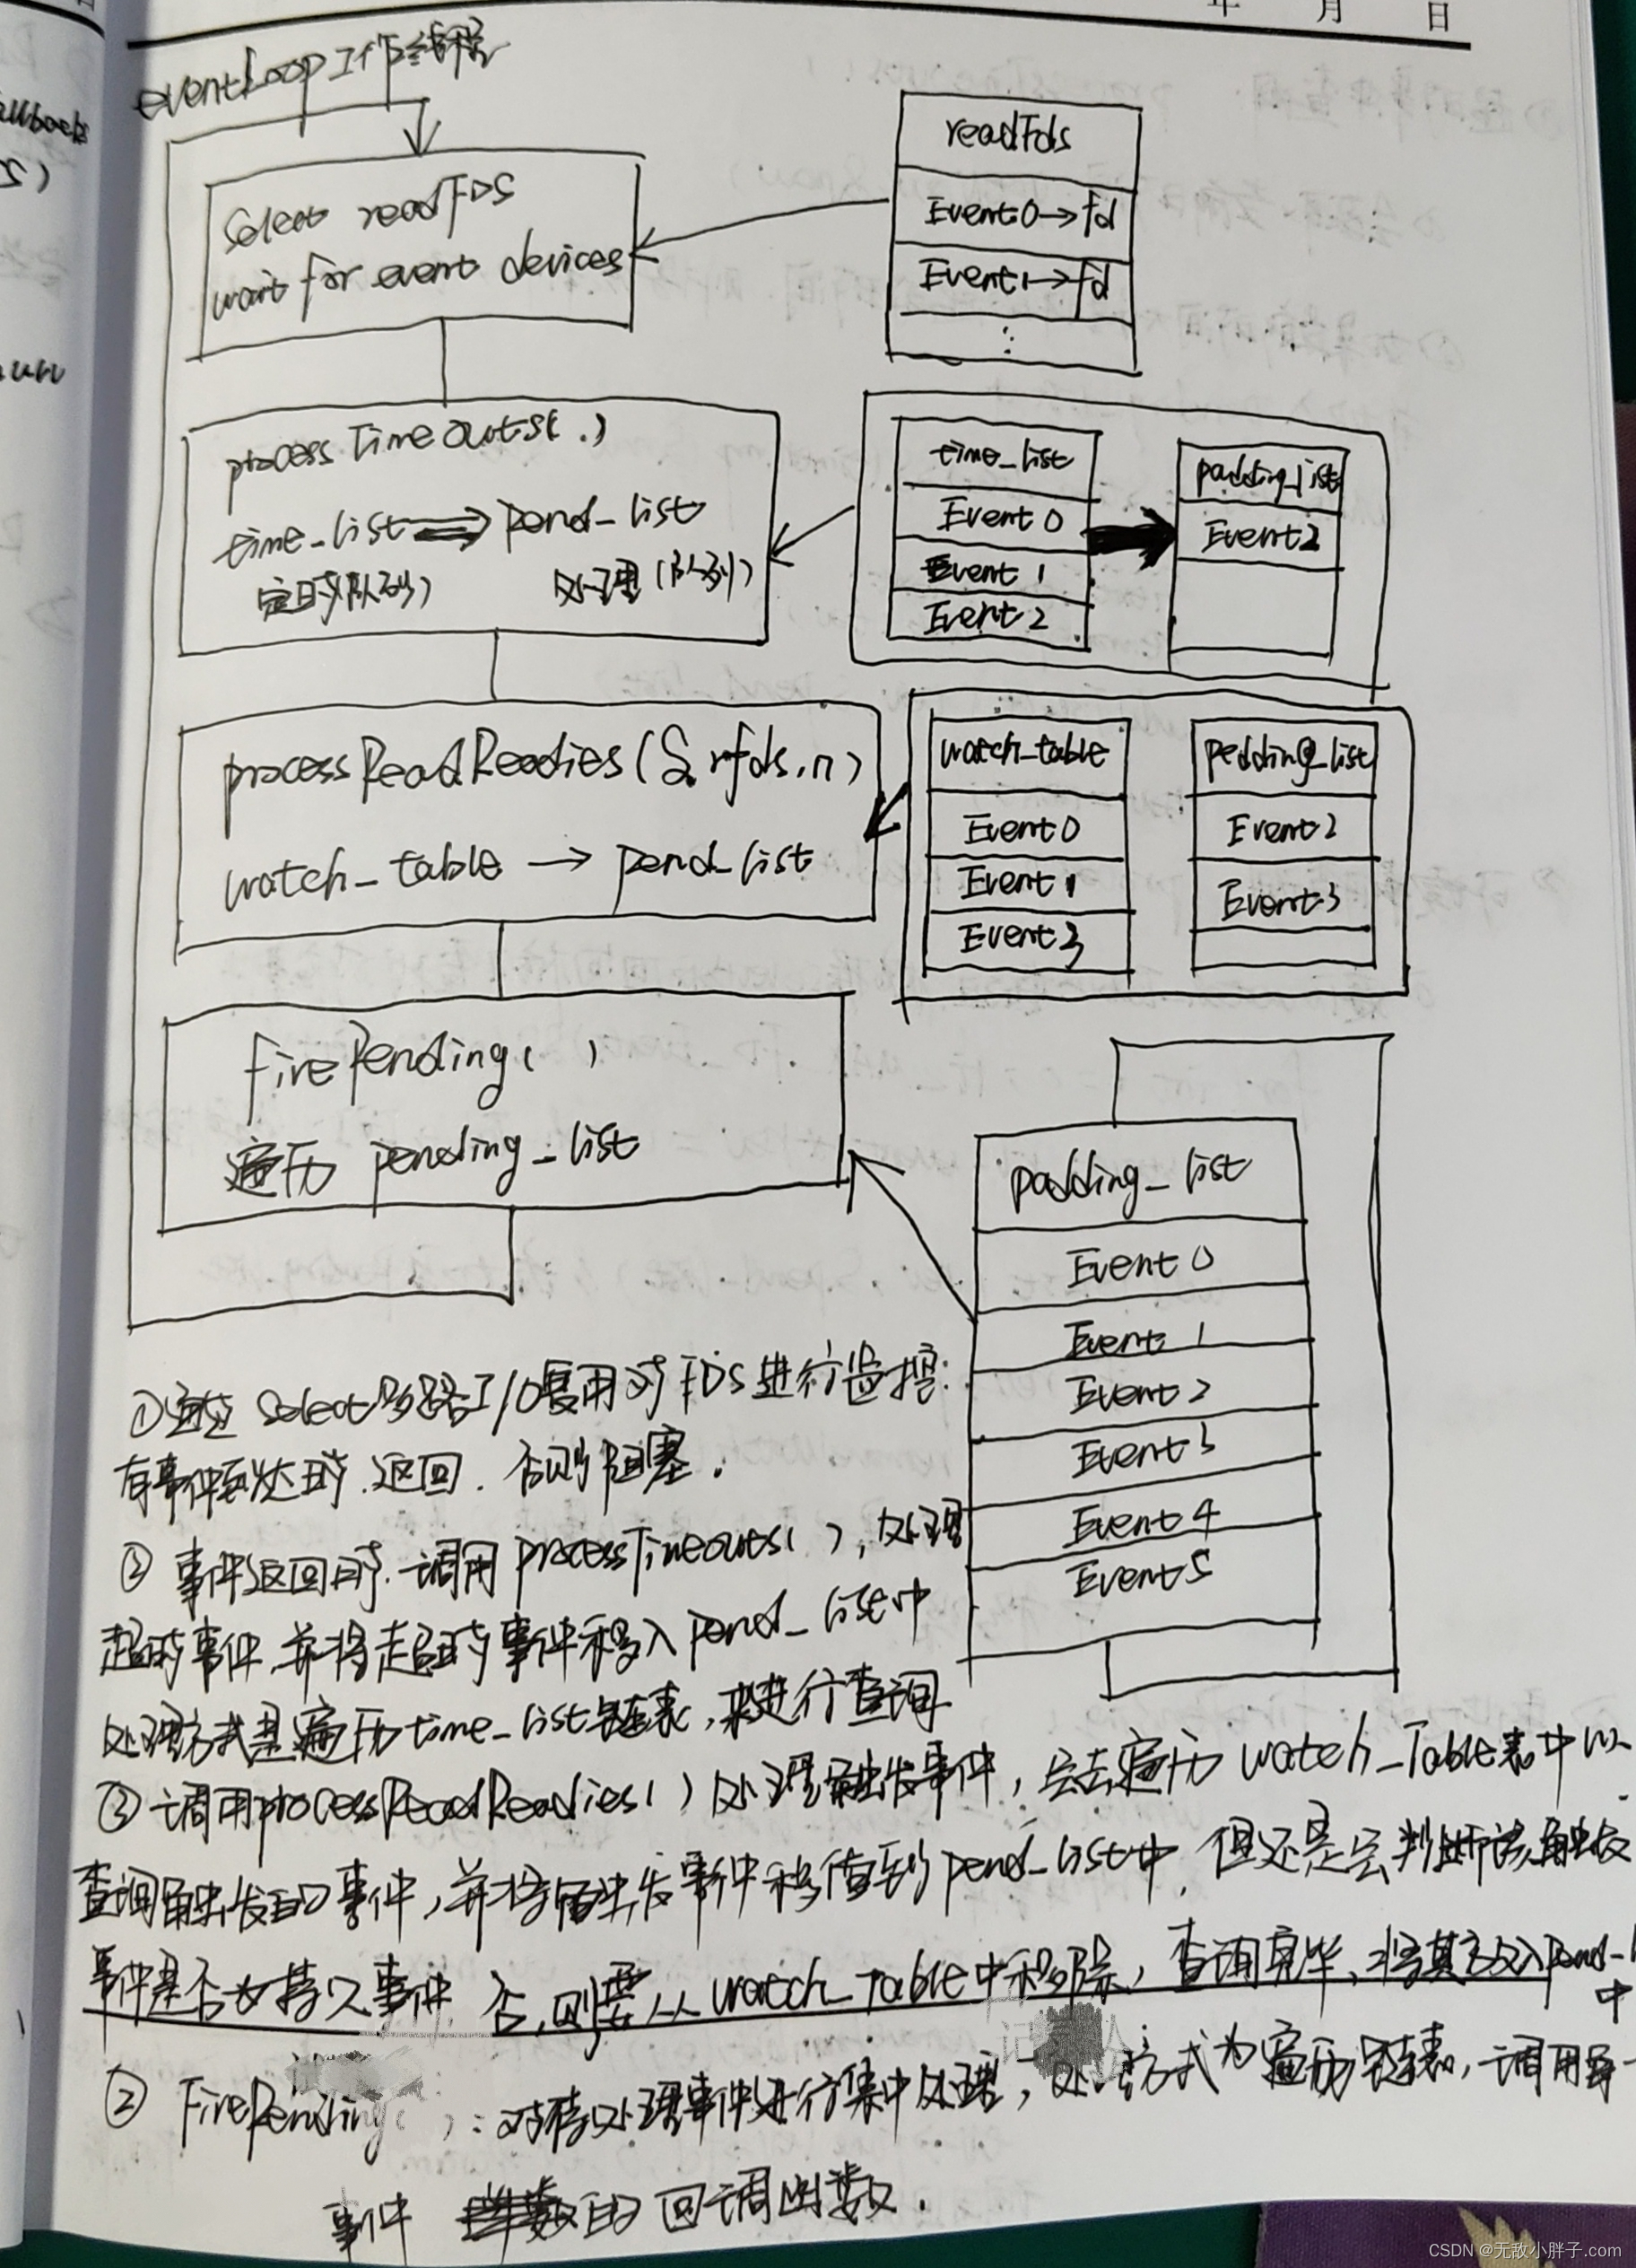 年 月 日
eventLoop工作线程
Select readFDS
wait for event devices
readFds
Event0→fd
Event1→fd
⋮
processTimeOuts( . )
time_list ⇒ pend_list
定时(队列) 处理(队列)
time_list
Event0
Event1
Event2
padding_list
Event2
processReadReadies(&rfds,n)
watch_table → pend_list
watch_table
Event0
Event1
Event3
pedding_list
Event2
Event3
firePending( )
遍历 pending_list
padding_list
Event0
Event1
Event2
Event3
Event4
Event5
① Select多路I/O复用对FDS进行监控:
有事件到达时.返回.否则阻塞.
② 事件返回时.调用processTimeouts( ),处理
超时事件,并将超时事件移入pend_list中
处理方式是遍历time_list链表,来进行查询
③ 调用processReadReadies( )处理触发事件,会去遍历watch_Table表中以
查询触发的事件,并将触发事件移值到pend_list中,但还是会判断该触发
事件是否为持久事件 否,则要从watch_Table中移除,查询完毕,将其放入pend-
中
② FirePending( ):对待处理事件进行集中处理,处理方式为遍历链表,调用每一
事件 的回调函数.
CSDN @无敌小胖子.com